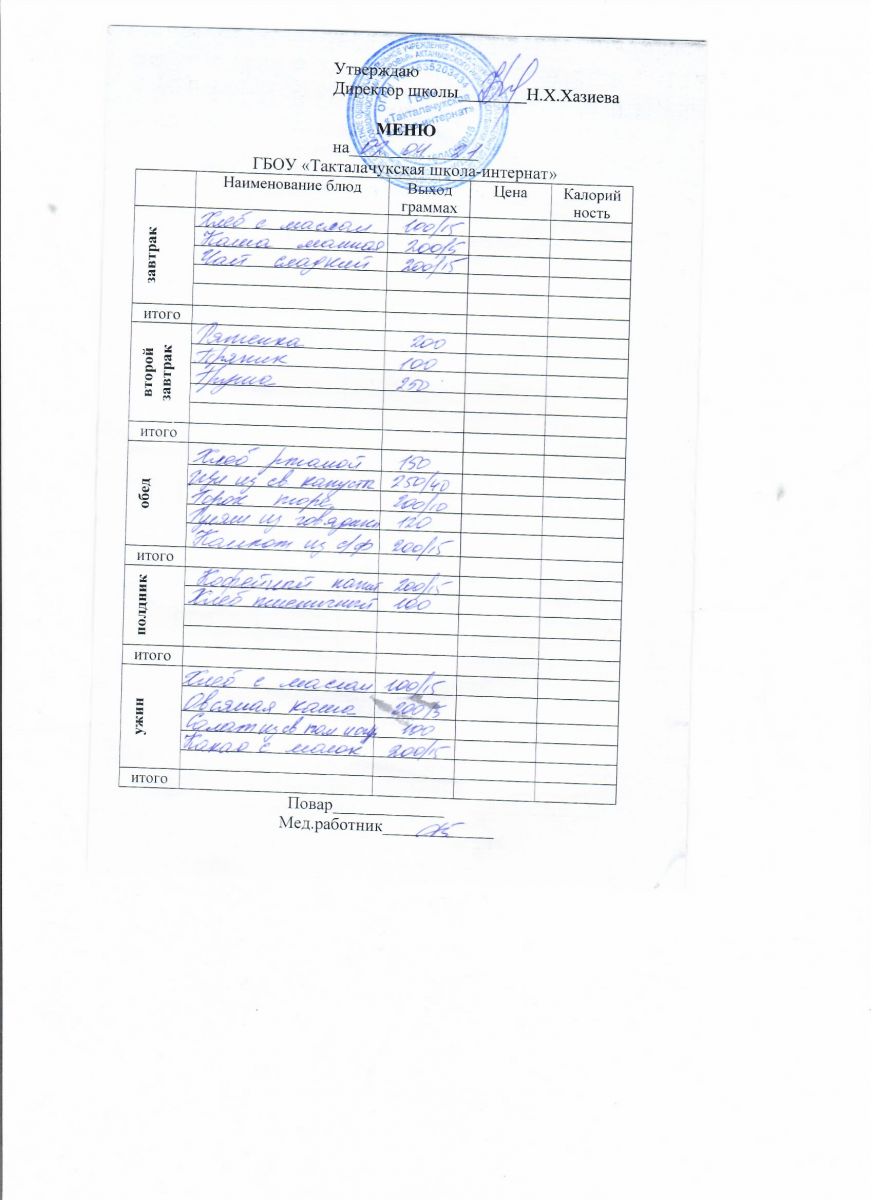 Утверждаю
Директор школы________Н.Х.Хазиева
ГБОУ
«Такталачукская
школа-интернат»
МЕНЮ
на 01 04 21
ГБОУ «Такталачукская школа-интернат»
Наименование блюд Выход граммах Цена Калорий ность
завтрак
Хлеб с маслом 100/15
Каша манная 200/5
Чай сладкий 200/15
итого
второй завтрак
Ряженка 200
Пряник 100
Груша 250
итого
обед
Хлеб ржаной 150
Щи из св капусты 250/40
Горох пюре 200/10
Гуляш из говядины 120
Компот из с/ф 200/15
итого
полдник
Кофейной напит 200/15
Хлеб пшеничной 100
итого
ужин
Хлеб с маслом 100/15
Овсяная каша 200/5
Салат из св пом и огур 100
Какао с молок 200/15
итого
Повар_____________
Мед.работник_____________